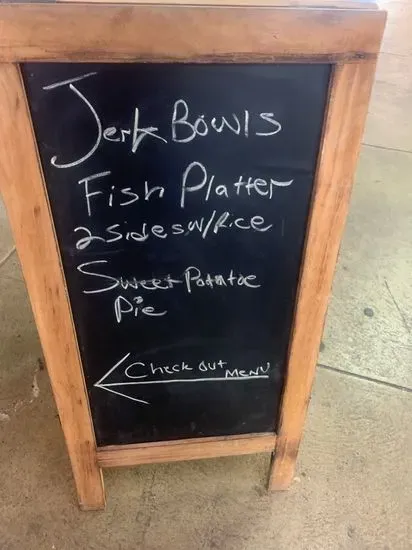 Jerk Bowls
Fish Platter
2 Sides w/Rice
Sweet Potatoe
Pie
Check out MENU